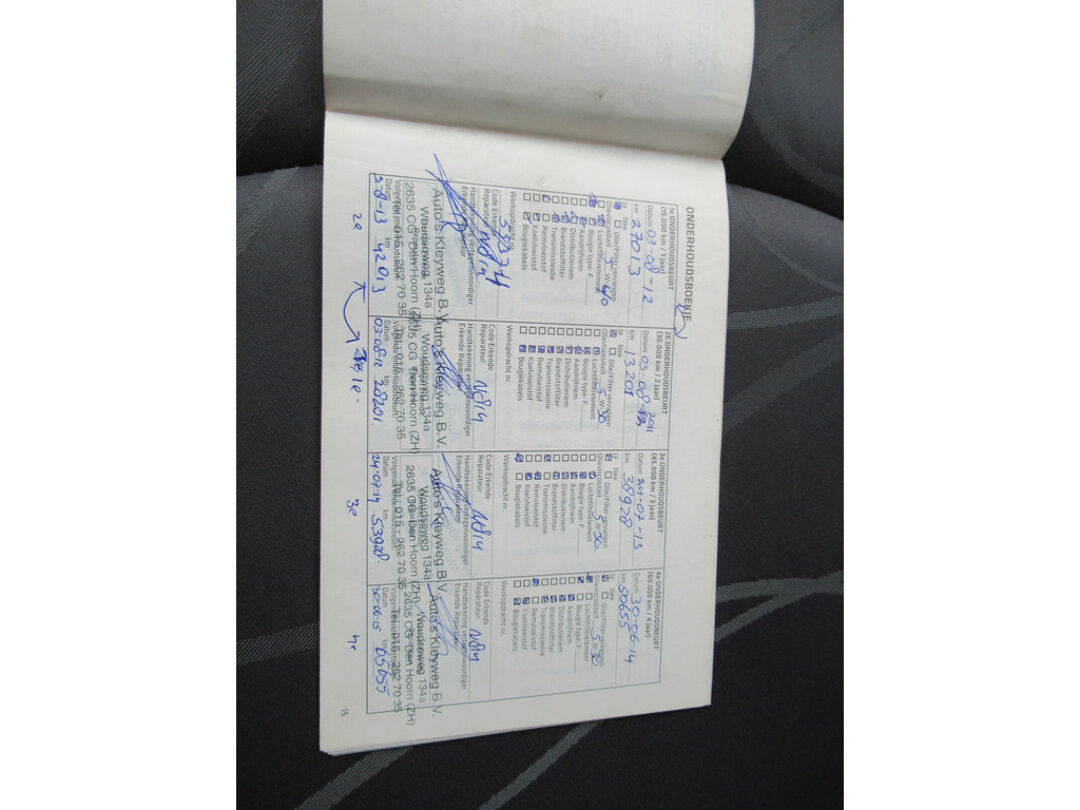 ONDERHOUDSBOEKJE
1e ONDERHOUDSBEURT
(15.000 km / 1 jaar)
Datum 03-08-12
km 27013
Ja Nee
Olie/Filter vervangen
Olieviscositeit 5 W 40
Luchtfilterelement
Bougie type: F
Aandrijfriem
Distributieriem
Brandstoffilter
Transmissieolie
Remvloeistof
Koelvloeistof
Bougiekabels
Werkopdracht nr.
Code Erkende
Reparateur N814
Handtekening vertegenwoordiger
Erkende Reparateur
Auto's Kleyweg B.V.
Woudseweg 134a
2635 CG Den Hoorn (ZH)
Tel. 015 - 262 70 35
Volgende onderhoudsbeurt
Datum km
3-8-13 42013
2e
2E ONDERHOUDSBEURT
(30.000 km / 2 jaar)
2011
Datum 03-08
km 13201
Ja Nee
Olie/Filter vervangen
Olieviscositeit 5 W 30
Luchtfilterelement
Bougie type: F
Aandrijfriem
Distributieriem
Brandstoffilter
Transmissieolie
Remvloeistof
Koelvloeistof
Bougiekabels
Werkopdracht nr.
Code Erkende
Reparateur N814
Handtekening vertegenwoordiger
Erkende Reparateur
Auto's Kleyweg B.V.
Woudseweg 134a
2635 CG Den Hoorn (ZH)
Tel. 015 - 262 70 35
Volgende onderhoudsbeurt
Datum km
03-08-12 28201.
1e.
3e ONDERHOUDSBEURT
(45.000 km / 3 jaar)
Datum 24-07-13
km 38928
Ja Nee
Olie/Filter vervangen
Olieviscositeit 5 W 30
Luchtfilterelement
Bougie type: F
Aandrijfriem
Distributieriem
Brandstoffilter
Transmissieolie
Remvloeistof
Koelvloeistof
Bougiekabels
Werkopdracht nr.
Code Erkende
Reparateur N814
Handtekening vertegenwoordiger
Erkende Reparateur
Auto's Kleyweg B.V.
Woudseweg 134a
2635 CG Den Hoorn (ZH)
Tel. 015 - 262 70 35
Volgende onderhoudsbeurt
Datum km
24-07-14 53928.
3e
4e ONDERHOUDSBEURT
(60.000 km / 4 jaar)
Datum 30-06-14
km 50655
Ja Nee
Olie/Filter vervangen
Olieviscositeit 5 W 30
Luchtfilterelement
Bougie type: F
Aandrijfriem
Distributieriem
Brandstoffilter
Transmissieolie
Remvloeistof
Koelvloeistof
Bougiekabels
Werkopdracht nr.
Code Erkende
Reparateur N814
Handtekening vertegenwoordiger
Erkende Reparateur
Auto's Kleyweg B.V.
Woudseweg 134a
2635 CG Den Hoorn (ZH)
Tel. 015 - 262 70 35
Volgende onderhoudsbeurt
Datum km
30-06-15 65655
4e
15